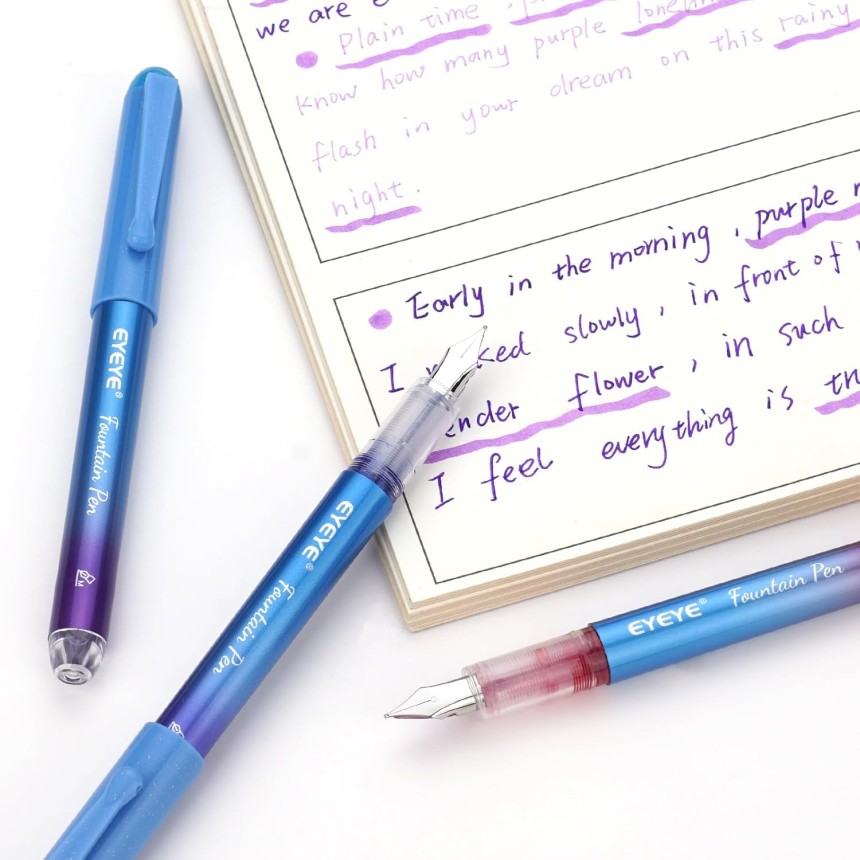 we are
Plain time
know how many purple lonelin
flash in your dream on this rainy
night.
Early in the morning, purple
I slowly, in front of
ender flower, in such
I feel everything is
EYEYE® Fountain Pen
M
EYEYE® Fountain Pen
EYEYE® Fountain Pen